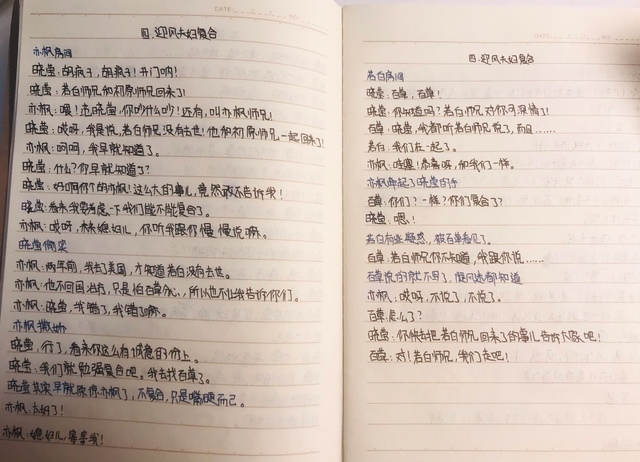 DATE
四.迎风夫妇复合
亦枫房间
晓萤：胡疯子，胡疯子！开门呐！
晓萤：若白师兄和初原师兄回来了！
亦枫：喂！范晓萤，你吵什么吵！还有，叫亦枫师兄！
晓萤：哎呀，我是说，若白师兄没有去世！他和初原师兄一起回来了！
亦枫：呵呵，我早就知道了。
晓萤：什么？你早就知道了？
晓萤：好啊你个胡亦枫！这么大的事儿，竟然敢不告诉我！
晓萤：看来我要考虑一下我们能不能复合了。
亦枫：哎呀，媳妇儿，你听我跟你慢慢说嘛。
晓萤傲娇
亦枫：两年前，我去了美国，才知道若白没有去世。
亦枫：他不回国治病，只是怕百草分心，所以也不让我告诉你们。
亦枫：晓萤，我错了，我错了嘛。
亦枫撒娇
晓萤：行了，看来你这么有诚意的份上。
晓萤：我们就勉强复合吧。我去找百草了。
晓萤其实早就原谅亦枫了，不复合，只是嘴硬而已。
亦枫：太好了！
亦枫：媳妇儿，等等我！
DATE
四.迎风夫妇复合
若白房间
晓萤：百草，百草！
晓萤：你知道吗？若白师兄对你可深情了！
百草：晓萤，我都听若白师兄说了，而且……
若白：我们在一起了。
亦枫：哇噻！恭喜呀，和我们一样。
亦枫牵起了晓萤的手
百草：你们？一样？你们复合了？
晓萤：嗯！
若白有些疑惑，被百草看见了。
百草：若白师兄你不知道，我跟你说……
百草说的就不写了，傻瓜都知道
亦枫：哎呀，不说了，不说了。
百草：怎么了？
晓萤：你快去把若白师兄回来了的事儿告诉大家吧！
百草：对！若白师兄，我们走吧！